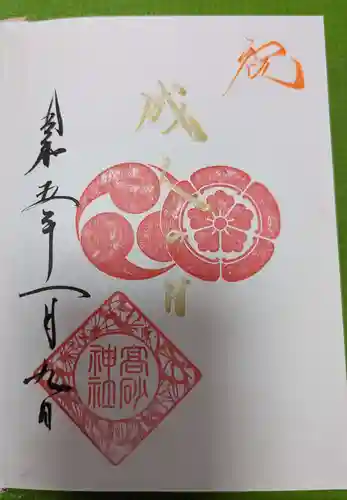 祝
成人の日
髙砂
神社
令和五年一月九日